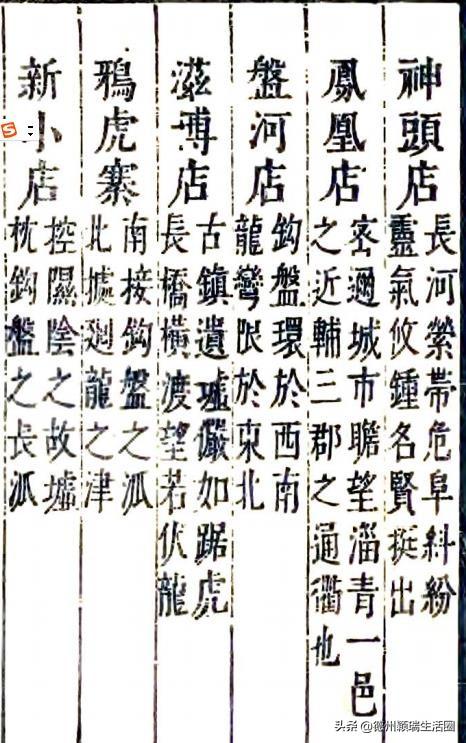 神頭店
長河縈帶危阜糾紛
靈氣攸鍾名賢挺出
鳳凰店
密邇城市瞻望淄青一邑
之近輔三郡之通衢也
盤河店
鈎盤環於西南
龍彎限於東北
滋博店
古鎮遺墟儼如踞虎
長橋橫渡望若伏龍
鴉虎寨
南接鈎盤之泒
北據廻龍之津
新小店
控隰陰之故墟
枕鈎盤之長泒
头条 @德州颖瑞生活圈